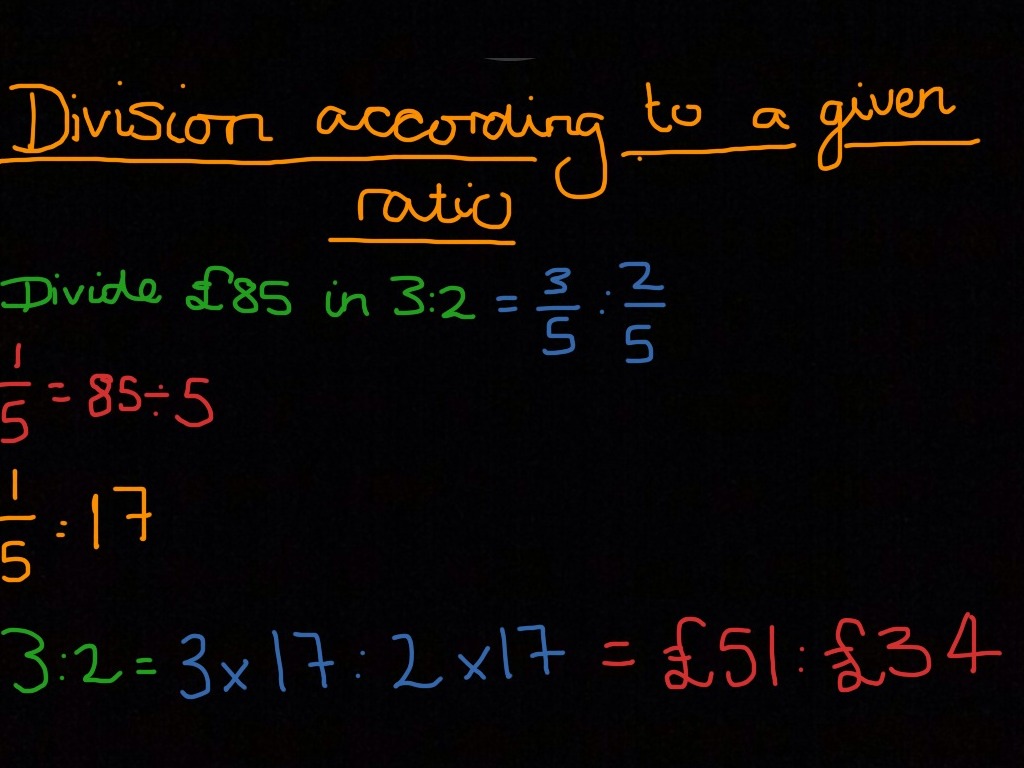 Division according to a given
ratio
Divide £85 in 3:2 = 3/5 : 2/5
1/5 = 85÷5
1/5 = 17
3:2 = 3x17 : 2x17 = £51 : £34